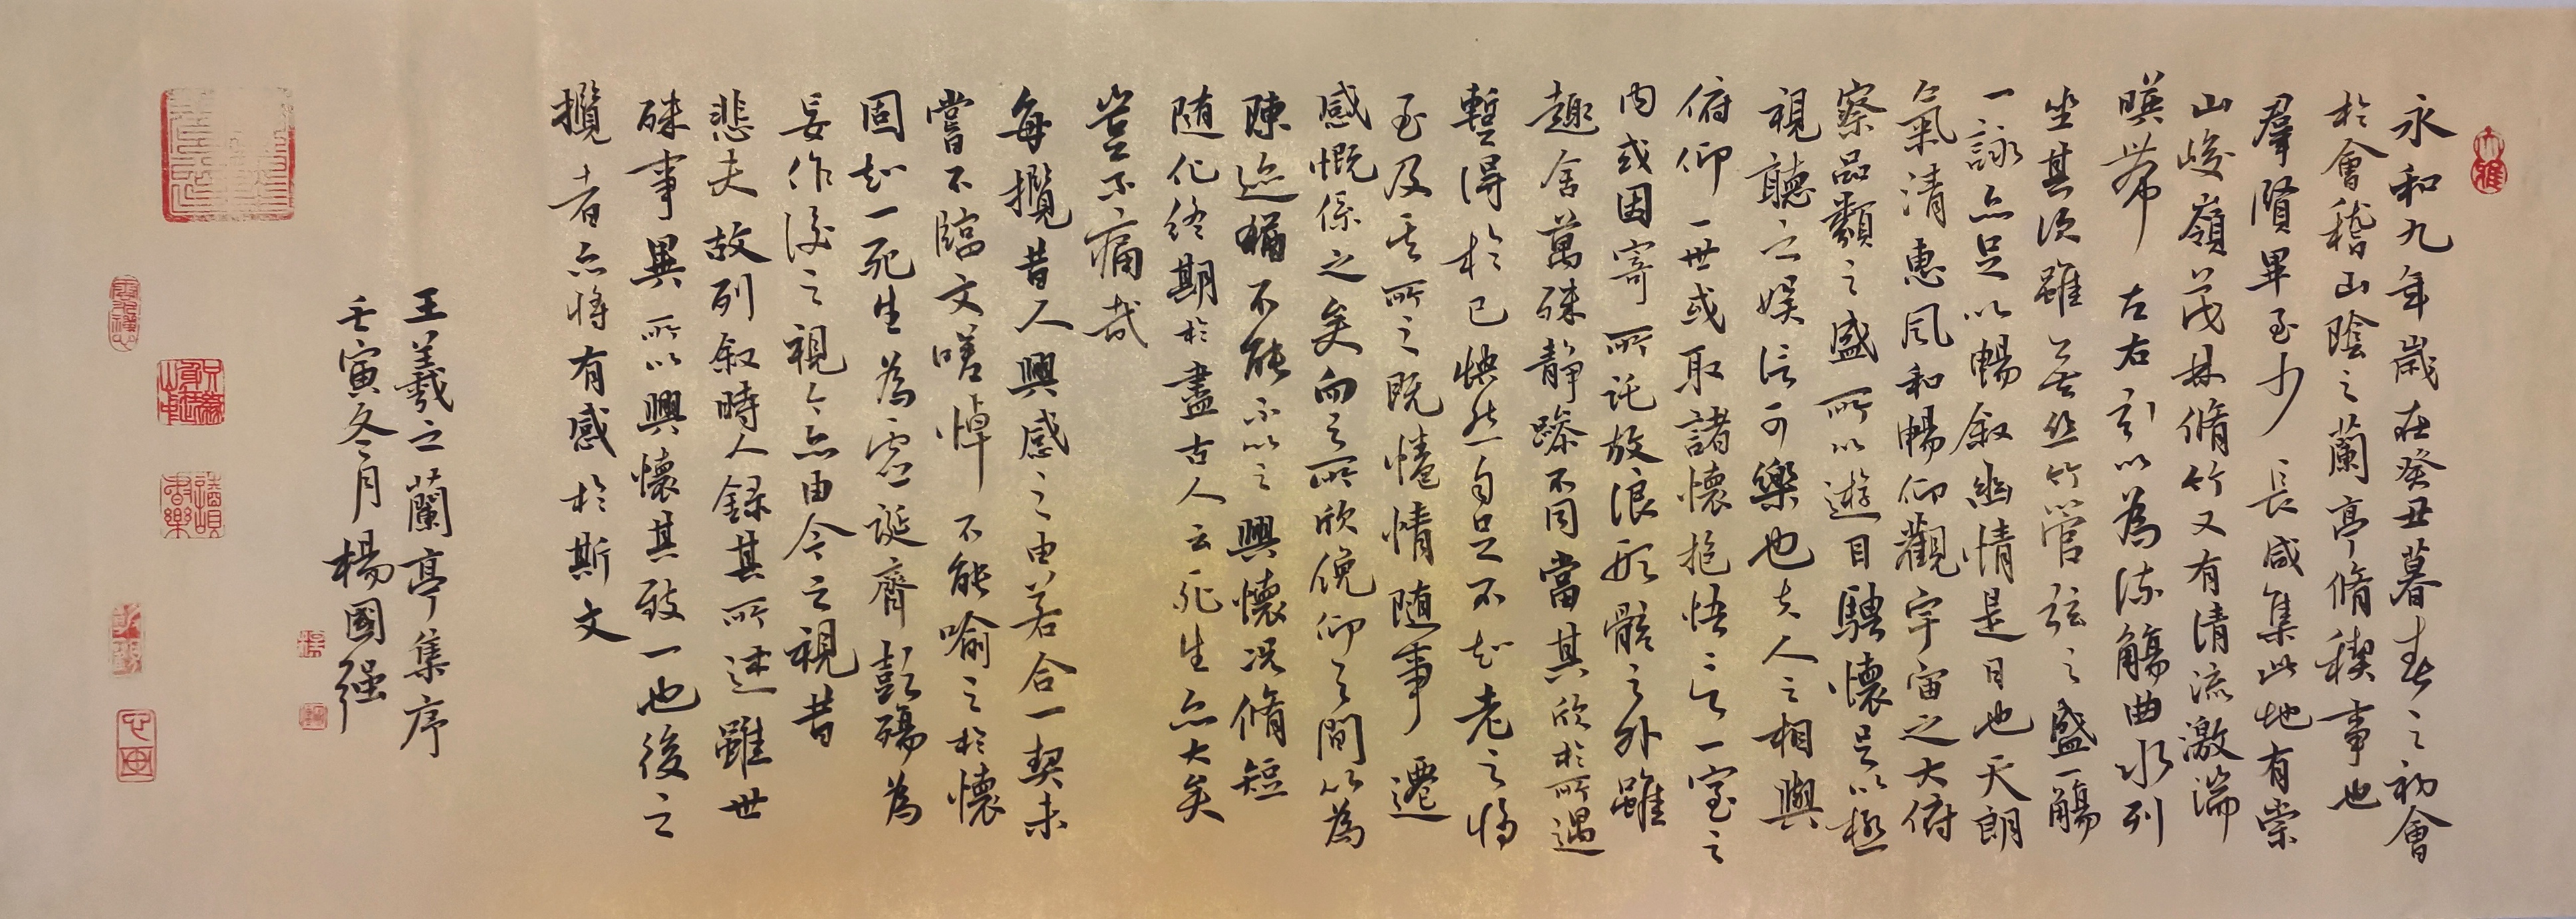 永和九年歲在癸丑暮春之初會
於會稽山陰之蘭亭脩稧事也
羣賢畢至少長咸集此地有崇
山峻嶺茂林脩竹又有清流激湍
暎帶左右引以為流觴曲水列
坐其次雖無絲竹管弦之盛一觴
一詠亦足以暢叙幽情是日也天朗
氣清惠風和暢仰觀宇宙之大俯
察品類之盛所以遊目騁懷足以極
視聽之娱信可樂也夫人之相與
俯仰一世或取諸懷抱悟言一室之
内或因寄所託放浪形骸之外雖
趣舍萬殊静躁不同當其欣於所遇
暫得於己怏然自足不知老之將
至及其所之既惓情随事遷
感慨係之矣向之所欣俛仰之間以為
陳迹猶不能不以之興懷況脩短
随化終期於盡古人云死生亦大矣
豈不痛哉
每攬昔人興感之由若合一契未
嘗不臨文嗟悼不能喻之於懷
固知一死生為虚誕齊彭殤為
妄作後之視今亦由今之視昔
悲夫故列叙時人録其所述雖世
殊事異所以興懷其致一也後之
攬者亦將有感於斯文
王羲之蘭亭集序
壬寅冬月楊國强